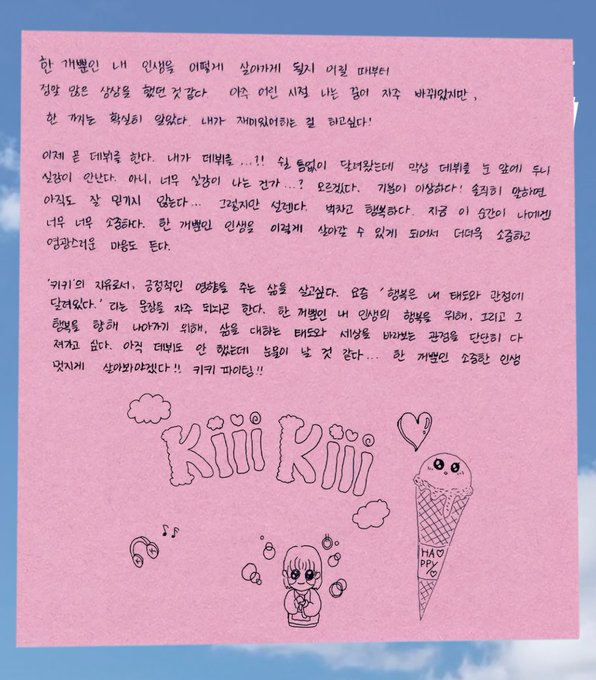 한 개뿐인 내 인생을 어떻게 살아가게 될지 어릴 때부터
정말 많은 상상을 했던 것 같다 아주 어린 시절 나는 꿈이 자주 바뀌었지만,
한 가지는 확실히 알았다. 내가 재미있어하는 걸 하고싶다!
이제 곧 데뷔를 한다. 내가 데뷔를 ...?! 쉴 틈없이 달려왔는데 막상 데뷔를 눈 앞에 두니
실감이 안난다. 아니, 너무 실감이 나는 건가...? 모르겠다. 기분이 이상하다! 솔직히 말하면
아직도 잘 믿기지 않는다... 그렇지만 설렌다. 벅차고 행복하다. 지금 이 순간이 나에겐
너무 너무 소중하다. 한 개뿐인 인생을 이렇게 살아갈 수 있게 되어서 더더욱 소중하고
영광스러운 마음도 든다.
'키키'의 자유로서, 긍정적인 영향을 주는 삶을 살고싶다. 요즘 '행복은 내 태도와 관점에
달려있다.' 라는 문장을 자주 되뇌곤 한다. 한 개뿐인 내 인생의 행복을 위해, 그리고 그
행복을 향해 나아가기 위해, 삶을 대하는 태도와 세상을 바라보는 관점을 단단히 다
져가고 싶다. 아직 데뷔도 안 했는데 눈물이 날 것 같다... 한 개뿐인 소중한 인생
멋지게 살아봐야겠다!! 키키 파이팅!!
Kiii Kiii
HA
PPY